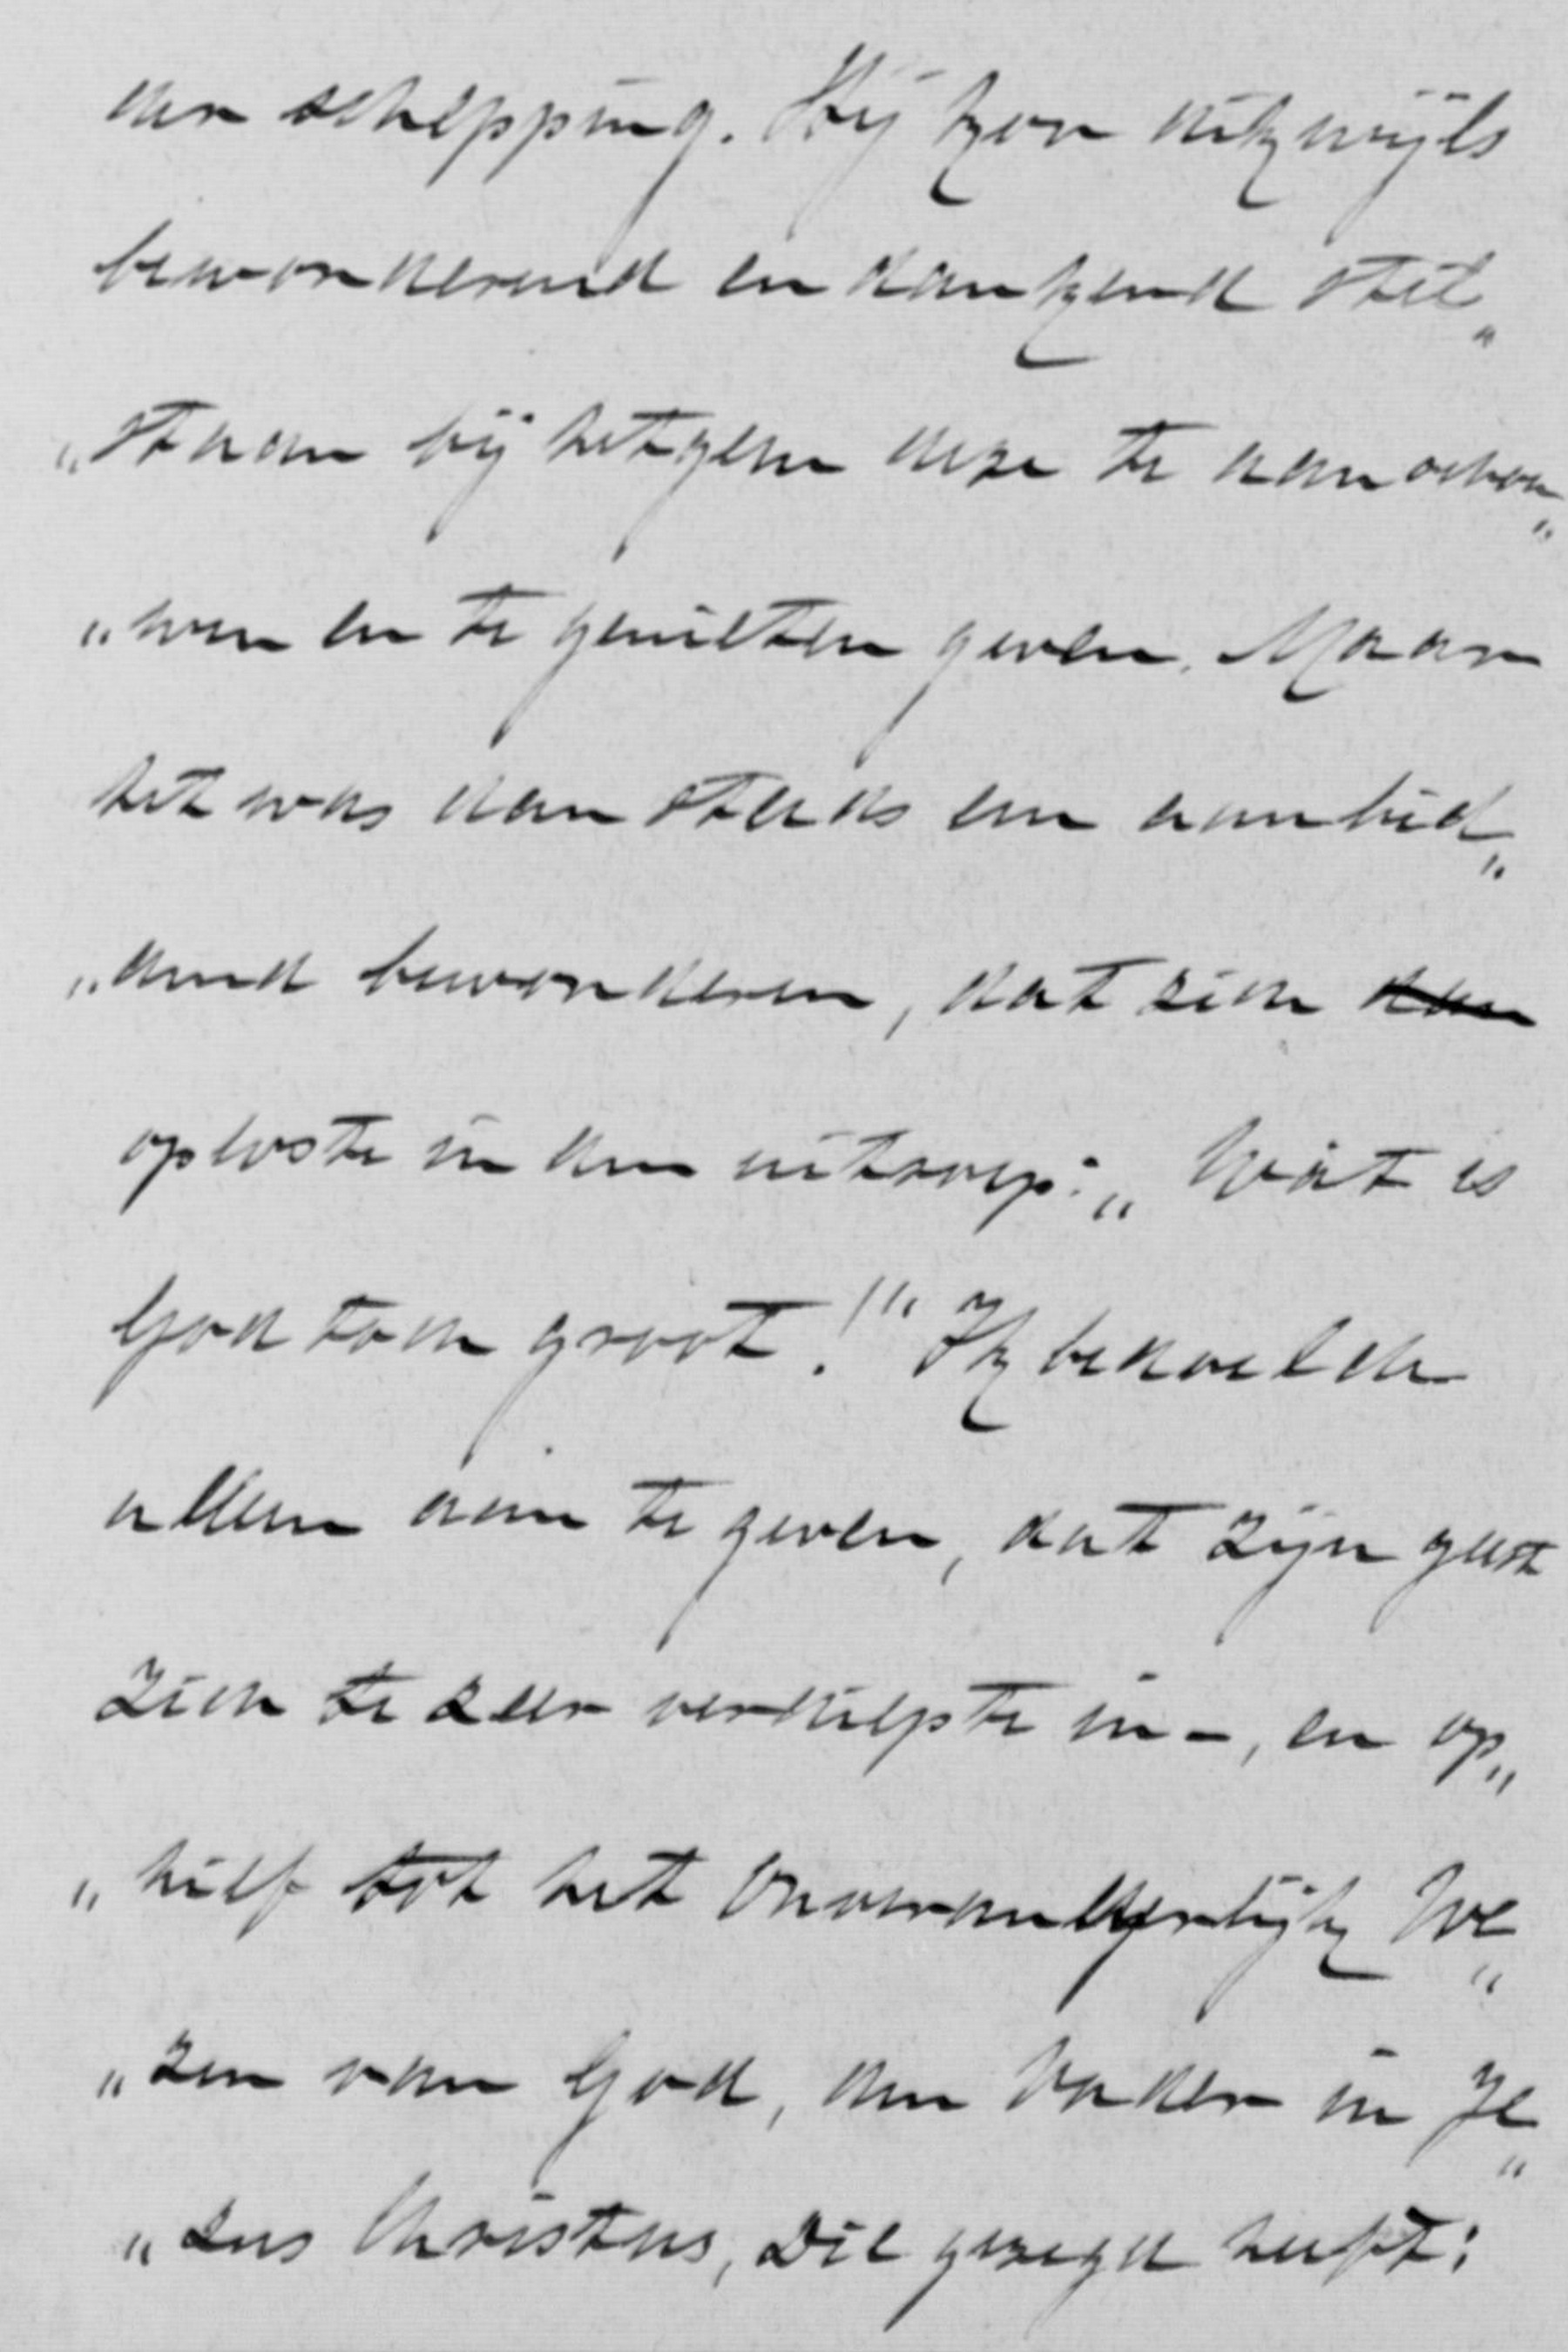 der schepping. Hij kon dikwijls
bewonderend en dankend stil„
„staan bij hetgeen deze te aanschou„
„wen en te genieten geven. Maar
het was dan steeds een aanbid„
„dend bewonderen, dat zich dan
oploste in den uitroep: „Wat is
God toch groot!“ Ik bedoelde
alleen aan te geven, dat zijn geest
zich te zeer verdiepte in -, en op„
„hief tot het Onveranderlijk We„
„zen van God, den Vader in Je„
„zus Christus, Die gezegd heeft: